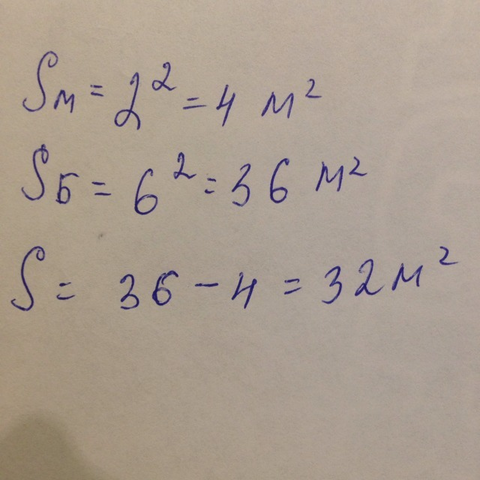 Sм = 2² = 4 м²
Sб = 6² = 36 м²
S = 36 - 4 = 32 м²